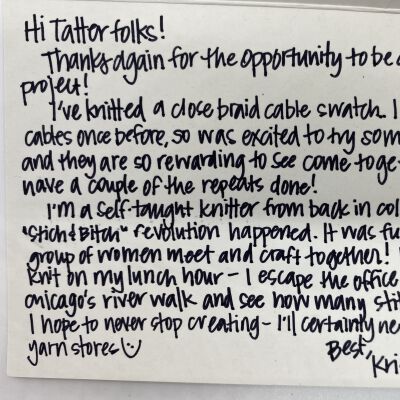 Hi Tatter folks!
Thanks again for the opportunity to be a
project!
I've knitted a close braid cable swatch. I
cables once before, so was excited to try som
and they are so rewarding to see come toge
have a couple of the repeats done!
I'm a self-taught knitter from back in col
"Stich & Bitch" revolution happened. It was fu
group of women meet and craft together!
knit on my lunch hour - I escape the office
chicago's river walk and see how many stit
I hope to never stop creating - I'll certainly ne
yarn stores
Best,
Kri